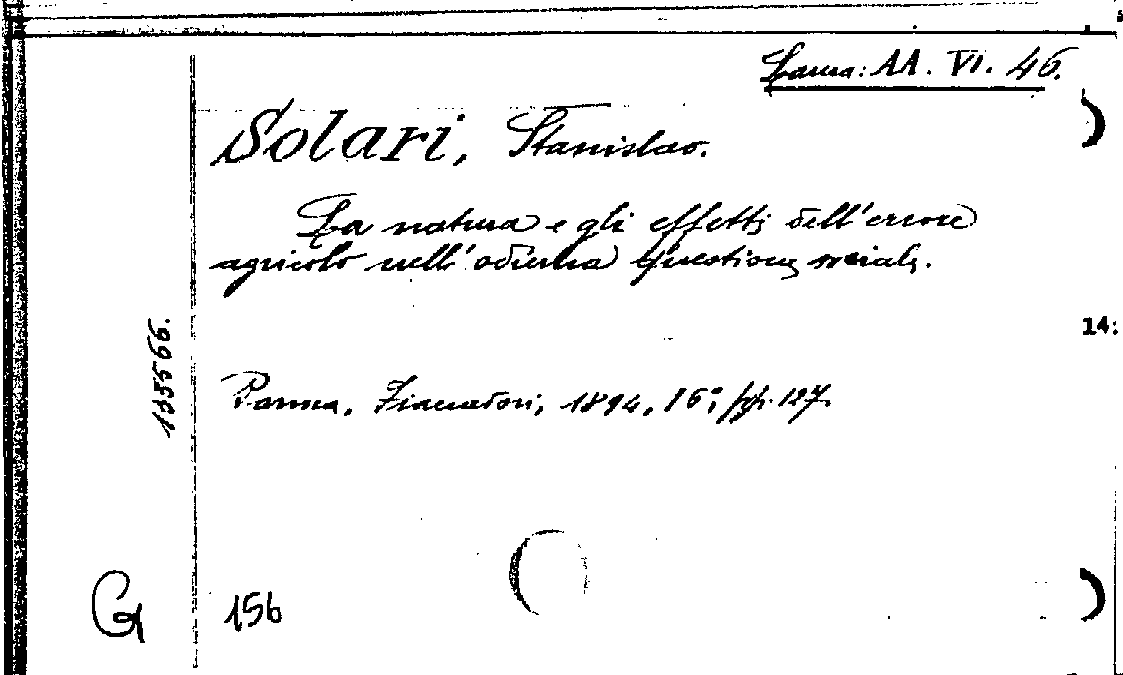 Sama: AA. VI. 46.
Solari, Stanislao.
La natura e gli effetti dell'errore
agricolo nell'odierna questione sociale.
Parma, Fiaccadori, 1894, 16°, pp. 127.
155566.
14:
G 156